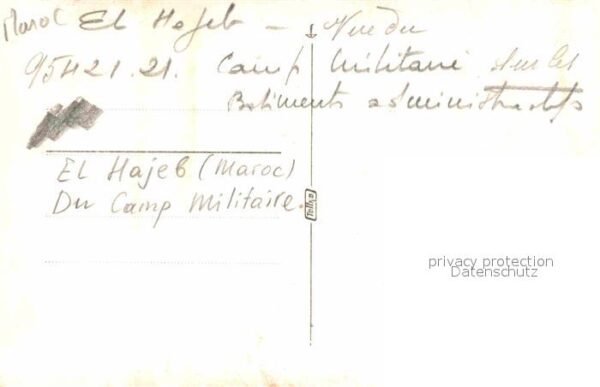 Maroc El Hajeb - Vue du
95421.21. Camp Militaire sur les
Batiments administratifs
EL Hajeb (Maroc)
Du Camp Militaire.
privacy protection
Datenschutz